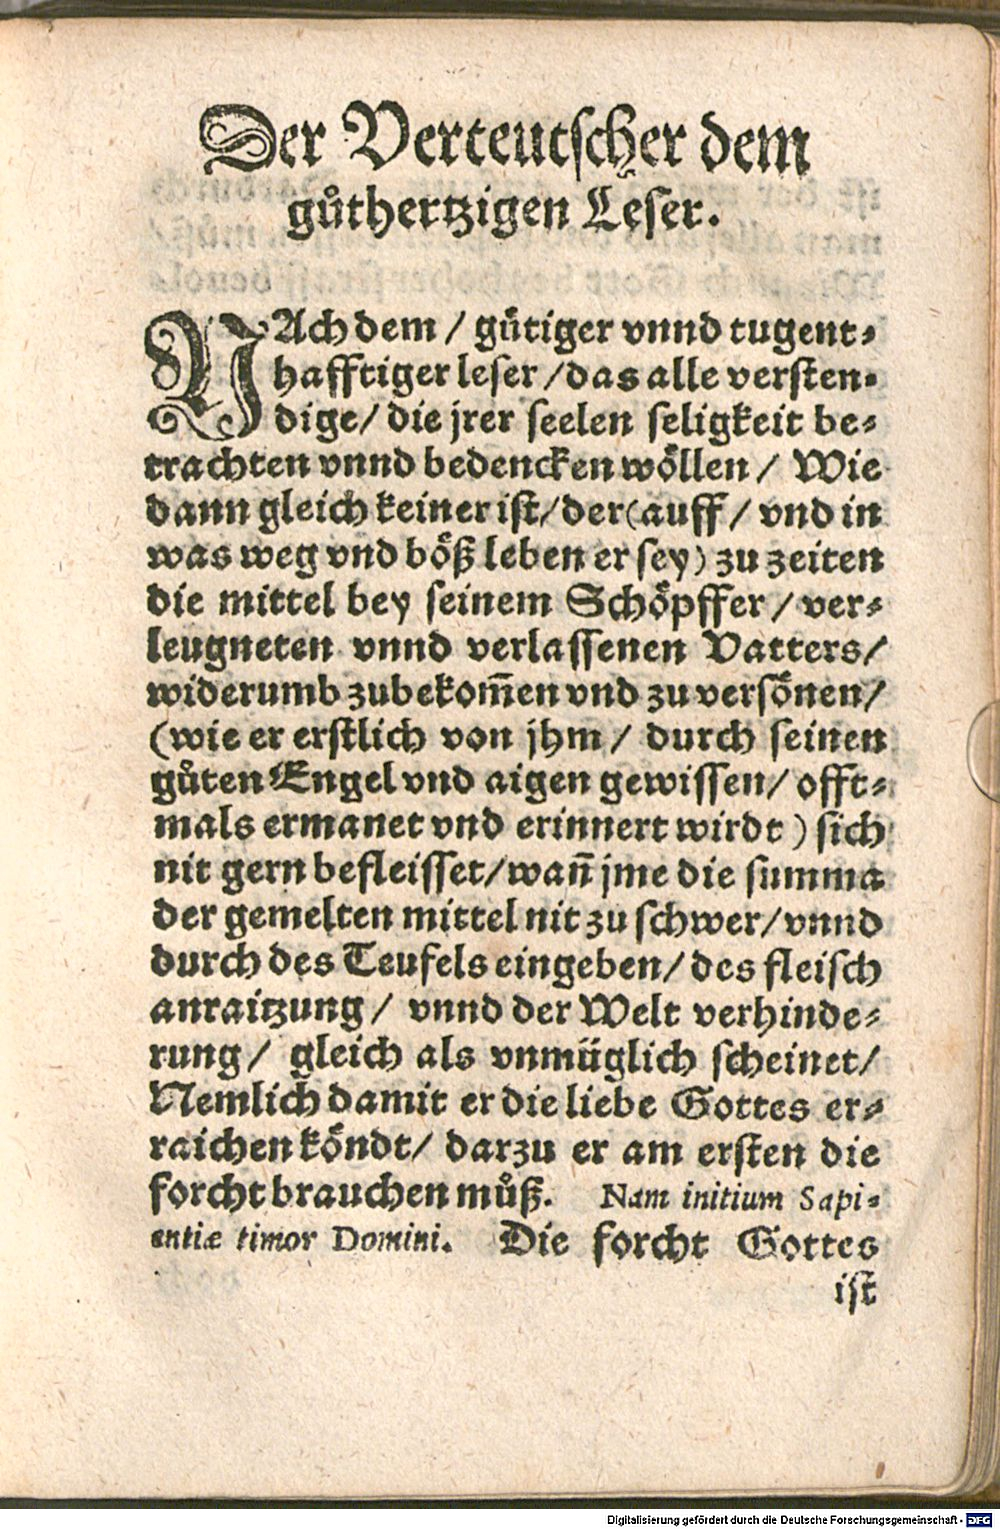 Der Verteutscher dem
gůthertzigen Leser.
NAch dem / gütiger vnnd tugent-
hafftiger leser / das alle versten-
dige / die jrer seelen seligkeit be-
trachten vnnd bedencken wöllen / Wie
dann gleich keiner ist / der (auff / vnd in
was weg vnd böß leben er sey) zu zeiten
die mittel bey seinem Schöpffer / ver-
leugneten vnnd verlassenen Vatters /
widerumb zubekom̄en vnd zu versönen /
(wie er erstlich von jhm / durch seinen
gůten Engel vnd aigen gewissen / offt-
mals ermanet vnd erinnert wirdt) sich
nit gern befleisset / wañ jme die summa
der gemelten mittel nit zu schwer / vnnd
durch des Teufels eingeben / des fleisch
anraitzung / vnnd der Welt verhinde-
rung / gleich als vnmüglich scheinet /
Nemlich damit er die liebe Gottes er-
raichen köndt / darzu er am ersten die
forcht brauchen můß. Nam initium Sapi-
entiæ timor Domini. Die forcht Gottes
ist
Digitalisierung gefördert durch die Deutsche Forschungsgemeinschaft - DFG